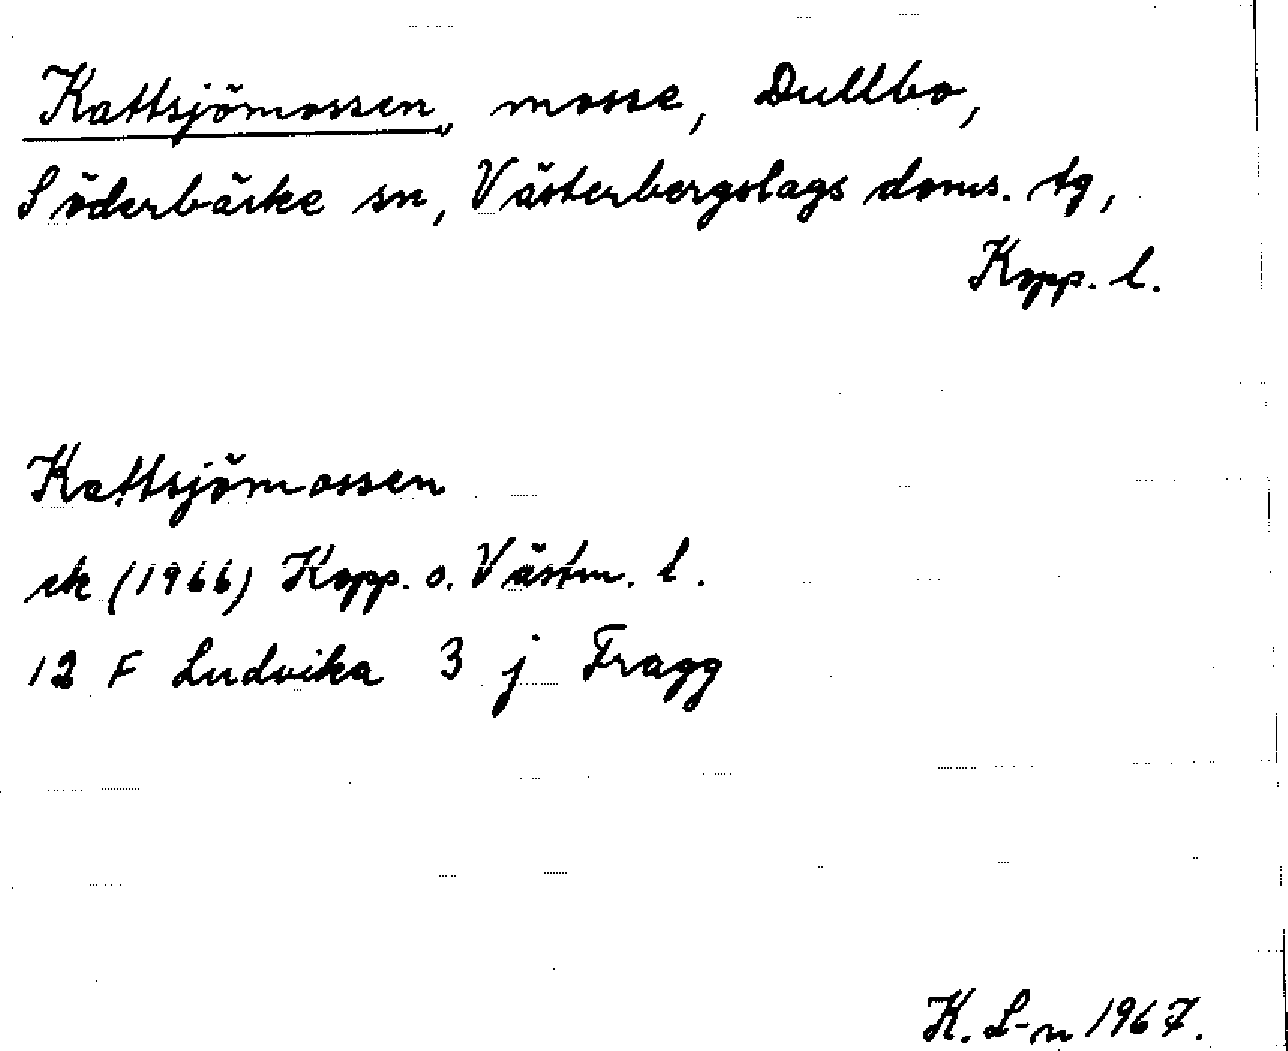 Kattsjömossen, mosse, Dullbo,
Söderbärke sn, Västerbergslags doms. tg,
Kopp. l.
Kattsjömossen
ek (1966) Kopp. o. Västm. l.
12 F Ludvika 3 j Fragg
K. L-n 1967.